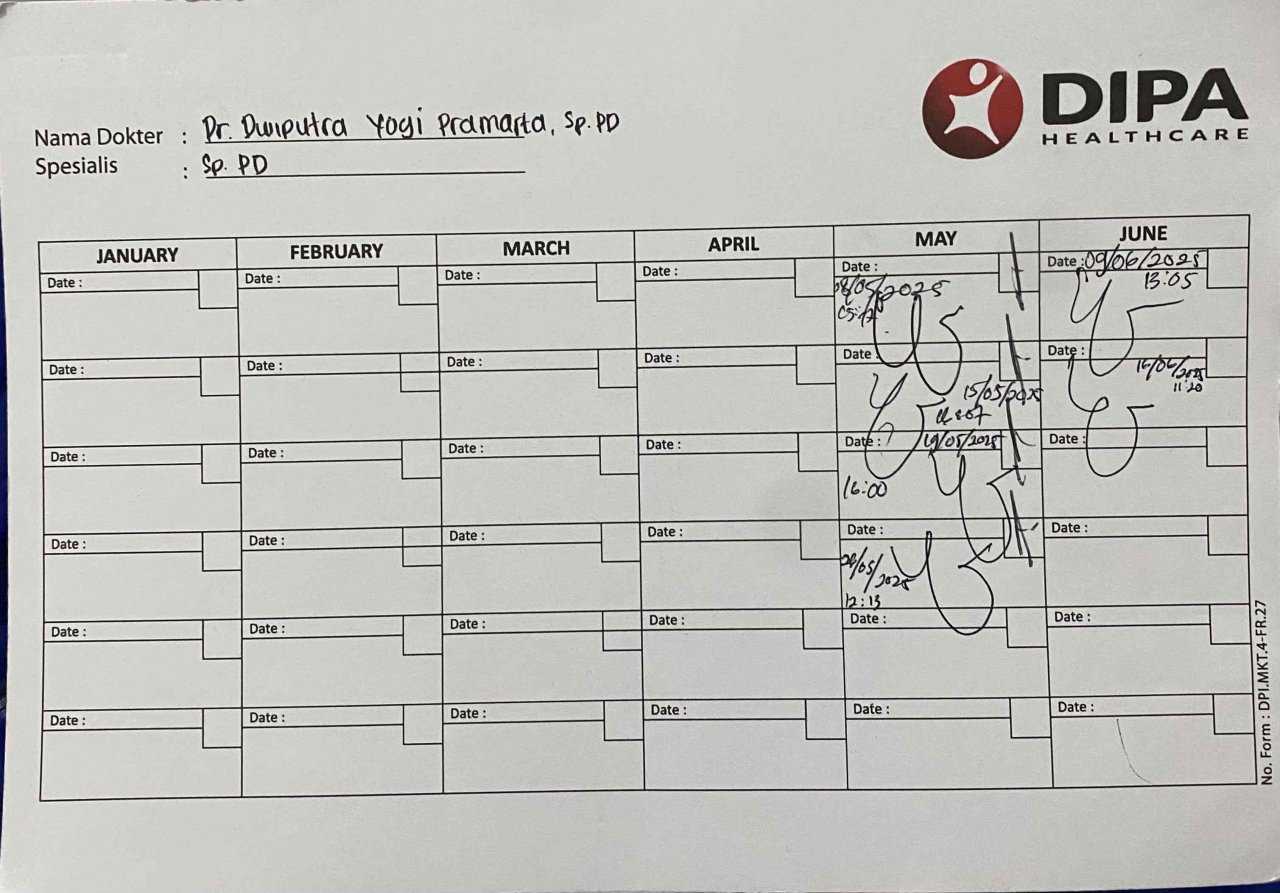 DIPA
HEALTHCARE
Nama Dokter : Dr. Dwiputra Yogi Pramarta, Sp.PD
Spesialis : Sp. PD
JANUARY FEBRUARY MARCH APRIL MAY JUNE
Date : Date : Date : Date : Date : Date : 09/06/2025
08/05/2025 13:05
Date : Date : Date : Date : Date : Date :
15/05/2025 16/06/2025
11:20
Date : Date : Date : Date : Date : 19/05/2025 Date :
16:00
Date : Date : Date : Date : Date : Date :
/05/2025
12:13
Date : Date : Date : Date : Date : Date :
Date : Date : Date : Date : Date : Date :
No. Form : DPI.MKT.4-FR.27